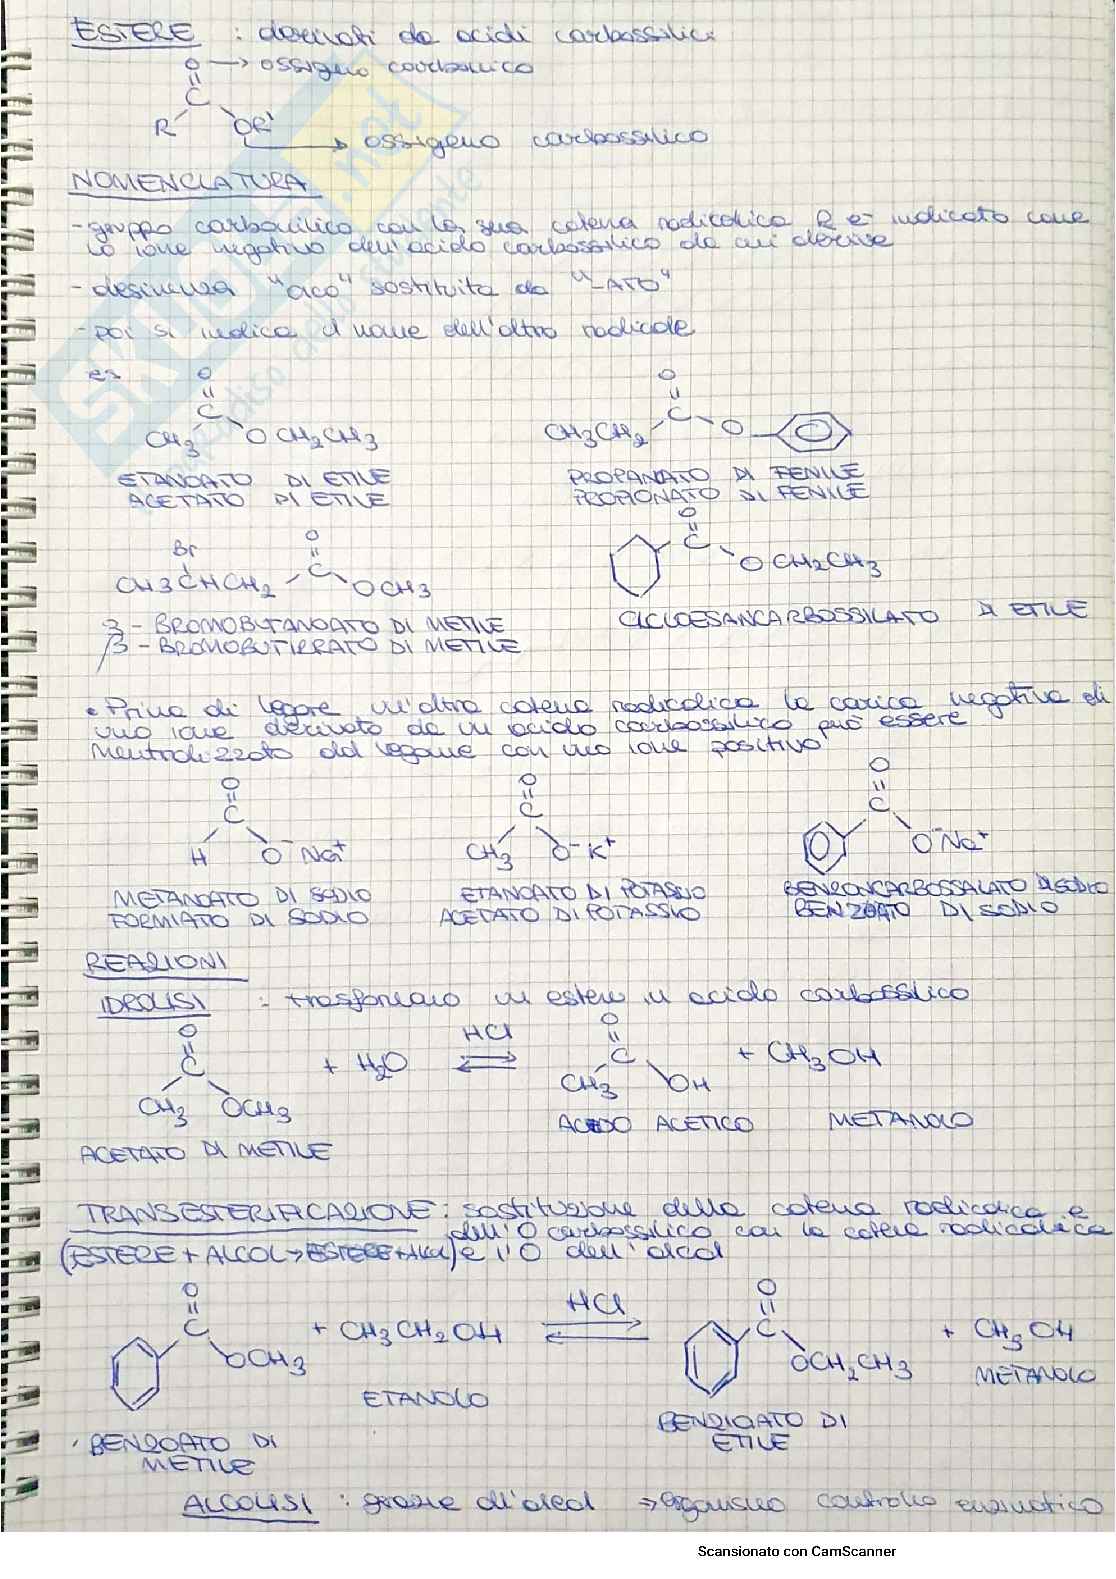 ESTERE : derivati da acidi carbossilici
O → ossigeno carbonilico
C
R OR'
→ ossigeno carbossilico
NOMENCLATURA
- gruppo carbonilico con la sua catena radicalica R è indicato come
lo ione negativo dell'acido carbossilico da cui deriva
- desinenza "aco" sostituita da "-ATO"
- poi si indica il nome dell'altro radicale
es
O O
C C
CH3 OCH2CH3 CH3CH2 O
ETANOATO DI ETILE PROPANATO DI FENILE
ACETATO DI ETILE PROPIONATO DI FENILE
Br O O
C C
CH3CHCH2 OCH3 OCH2CH3
3-BROMOBUTANOATO DI METILE CICLOESANCARBOSSILATO DI ETILE
β-BROMOBUTIRRATO DI METILE
• Prima di legare un'altra catena radicalica la carica negativa di
uno ione derivato da un acido carbossilico può essere
neutralizzato dal legame con uno ione positivo
O O O
C C C
H O⁻Na⁺ CH3 O⁻K⁺ O⁻Na⁺
METANOATO DI SODIO ETANOATO DI POTASSIO BENZONCARBOSSALATO DI SODIO
FORMIATO DI SODIO ACETATO DI POTASSIO BENZOATO DI SODIO
REAZIONI
IDROLISI : trasformano un estere in acido carbossilico
O O
C + H2O HCl ⇌ C + CH3OH
CH3 OCH3 CH3 OH
ACIDO ACETICO METANOLO
ACETATO DI METILE
TRANSESTERIFICAZIONE : sostituzione della catena radicalica e
dell'O carbossilico con la catena radicalica
(ESTERE + ALCOL → ESTERE + Alcol) e l'O dell'alcol
O O
C + CH3CH2OH HCl ⇌ C + CH3OH
OCH3 OCH2CH3 METANOLO
ETANOLO
BENZOATO DI METILE BENZIOATO DI ETILE
ALCOLISI : grazie all'alcol → organismo controllo enzimatico
Scansionato con CamScanner